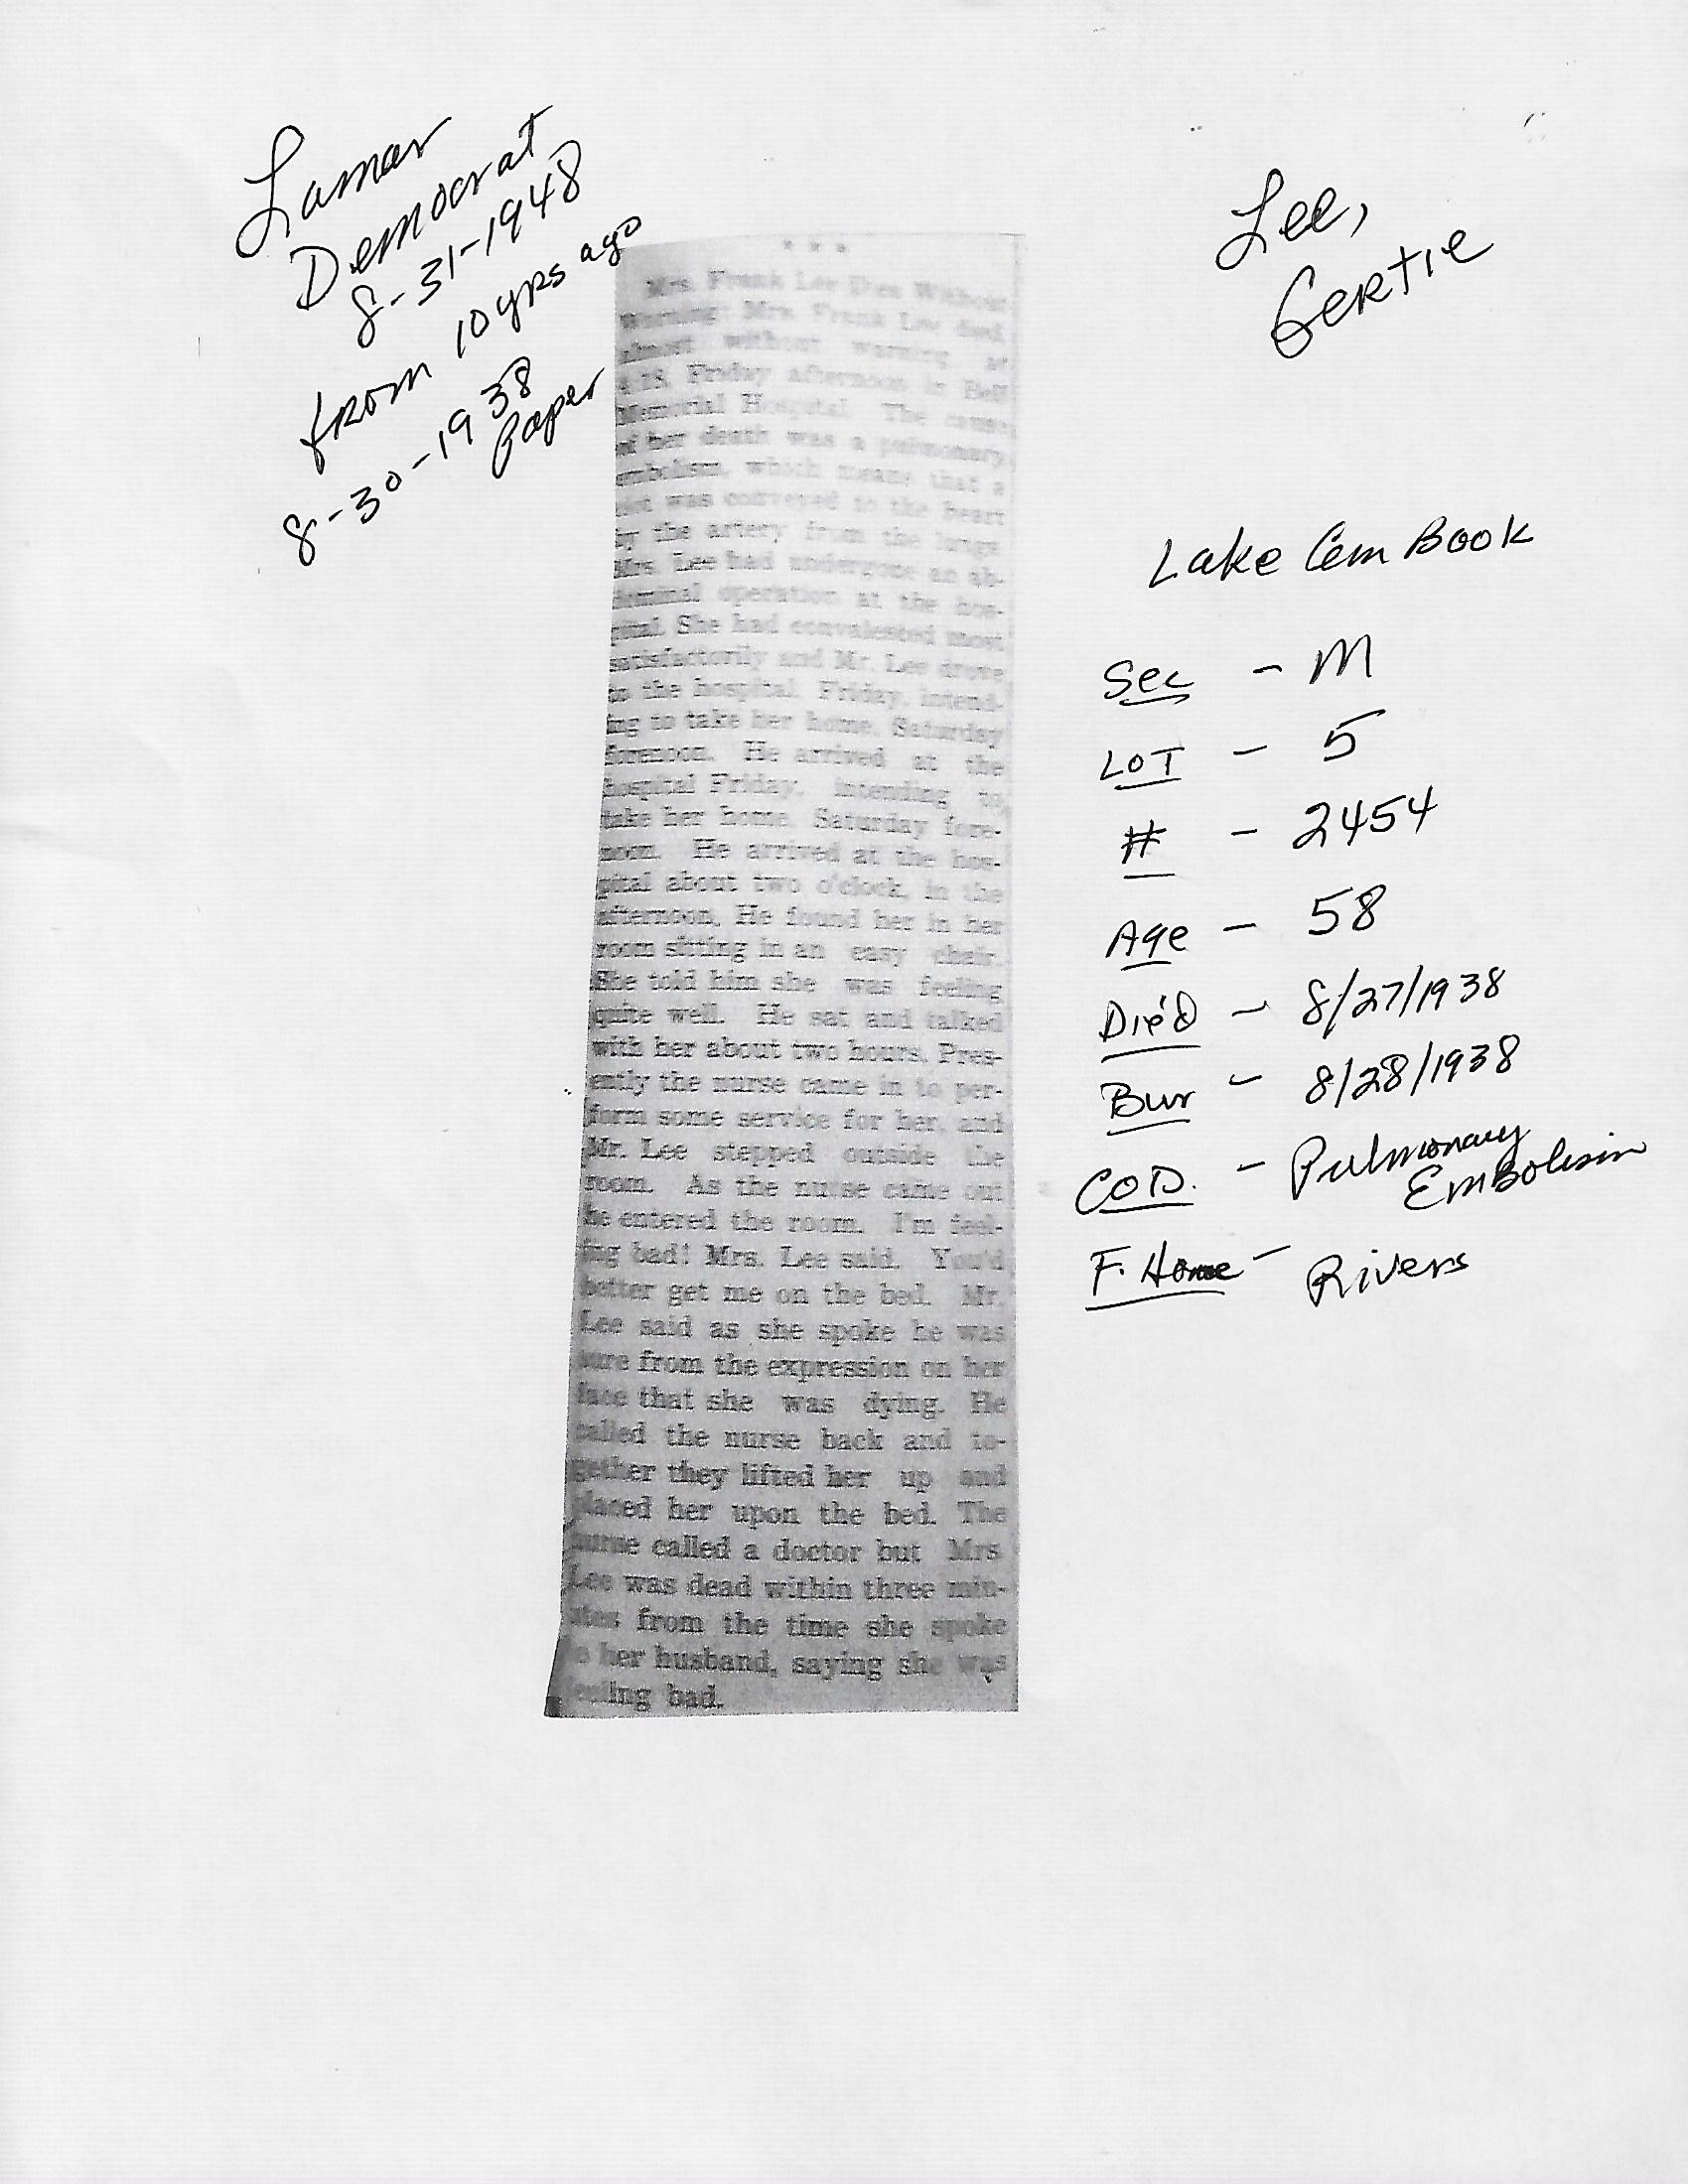 Lamar
Democrat
8-31-1948
from 10 yrs ago
8-30-1938
paper
Lee,
Gertie
* * *
Mrs. Frank Lee Dies Without
Warning: Mrs. Frank Lee died,
almost without warning at
Friday afternoon in Bell
Memorial Hospital. The cause
of her death was a pulmonary
embolism, which means that a
clot was conveyed to the heart
by the artery from the lungs.
Mrs. Lee had undergone an ab-
dominal operation at the hos-
pital. She had convalesced most
satisfactorily and Mr. Lee drove
to the hospital, Friday, intend-
ing to take her home, Saturday
forenoon. He arrived at the
hospital Friday, intending to
take her home, Saturday fore-
noon. He arrived at the hos-
pital about two o'clock, in the
afternoon, He found her in her
room sitting in an easy chair.
She told him she was feeling
quite well. He sat and talked
with her about two hours. Pres-
ently the nurse came in to per-
form some service for her, and
Mr. Lee stepped outside the
room. As the nurse came out
he entered the room. I'm feel-
ing bad! Mrs. Lee said. You'd
better get me on the bed. Mr.
Lee said as she spoke he was
sure from the expression on her
face that she was dying. He
called the nurse back and to-
gether they lifted her up and
placed her upon the bed. The
nurse called a doctor but Mrs
Lee was dead within three min-
utes from the time she spoke
to her husband, saying she was
feeling bad.
Lake Cem Book
Sec - M
LOT - 5
# - 2454
Age - 58
Die'd - 8/27/1938
Bur - 8/28/1938
COD. - Pulmonary
Embolism
F. Home - Rivers